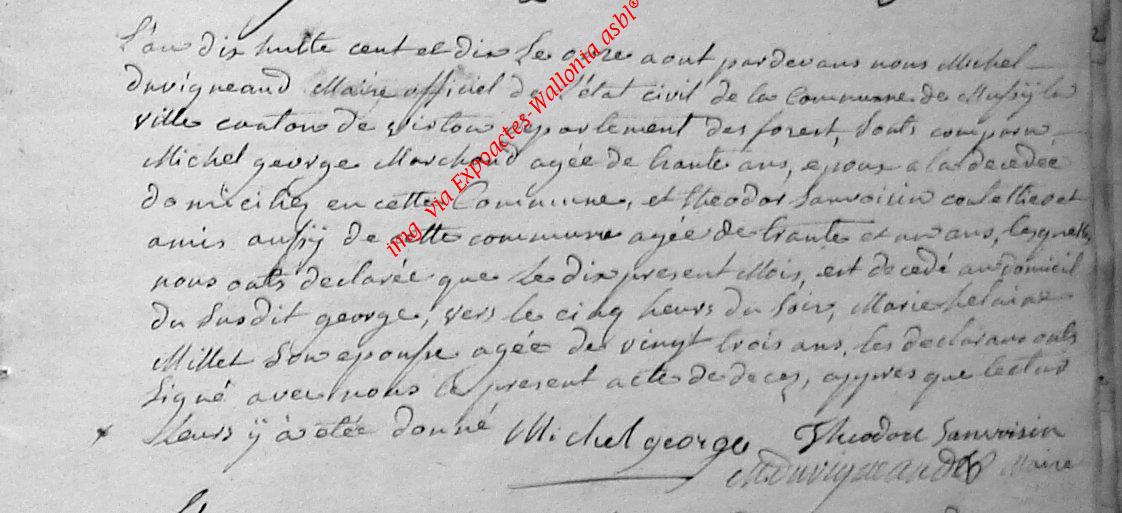 L'an dix huitte cent et dix le onze aout pardevans nous Michel
Duvigneaud Maire officiel de l'état civil de la Commune de Mussÿ la
ville canton de virton departement des forest, sonts comparu
Michel george Marchand agée de trante ans, epoux a la decedée
domicilié en cette Commune, et Theodor Sanvoisin
amis aussÿ de cette commune agée de trante et un ans, lesquels
nous onts declarée que le dix present Mois, est decedé au domicil
du susdit george, vers le cinq heurs du soir, Marie helaine
Millet son epousse agée de vingt trois ans, les declarans onts
signé avec nous le present acte de deces, appres que lectur
leurs ÿ à etée donné Michel george Theodore Sanvoisin
MDuvigneaud Maire
img via Expoactes-Wallonia asbl®